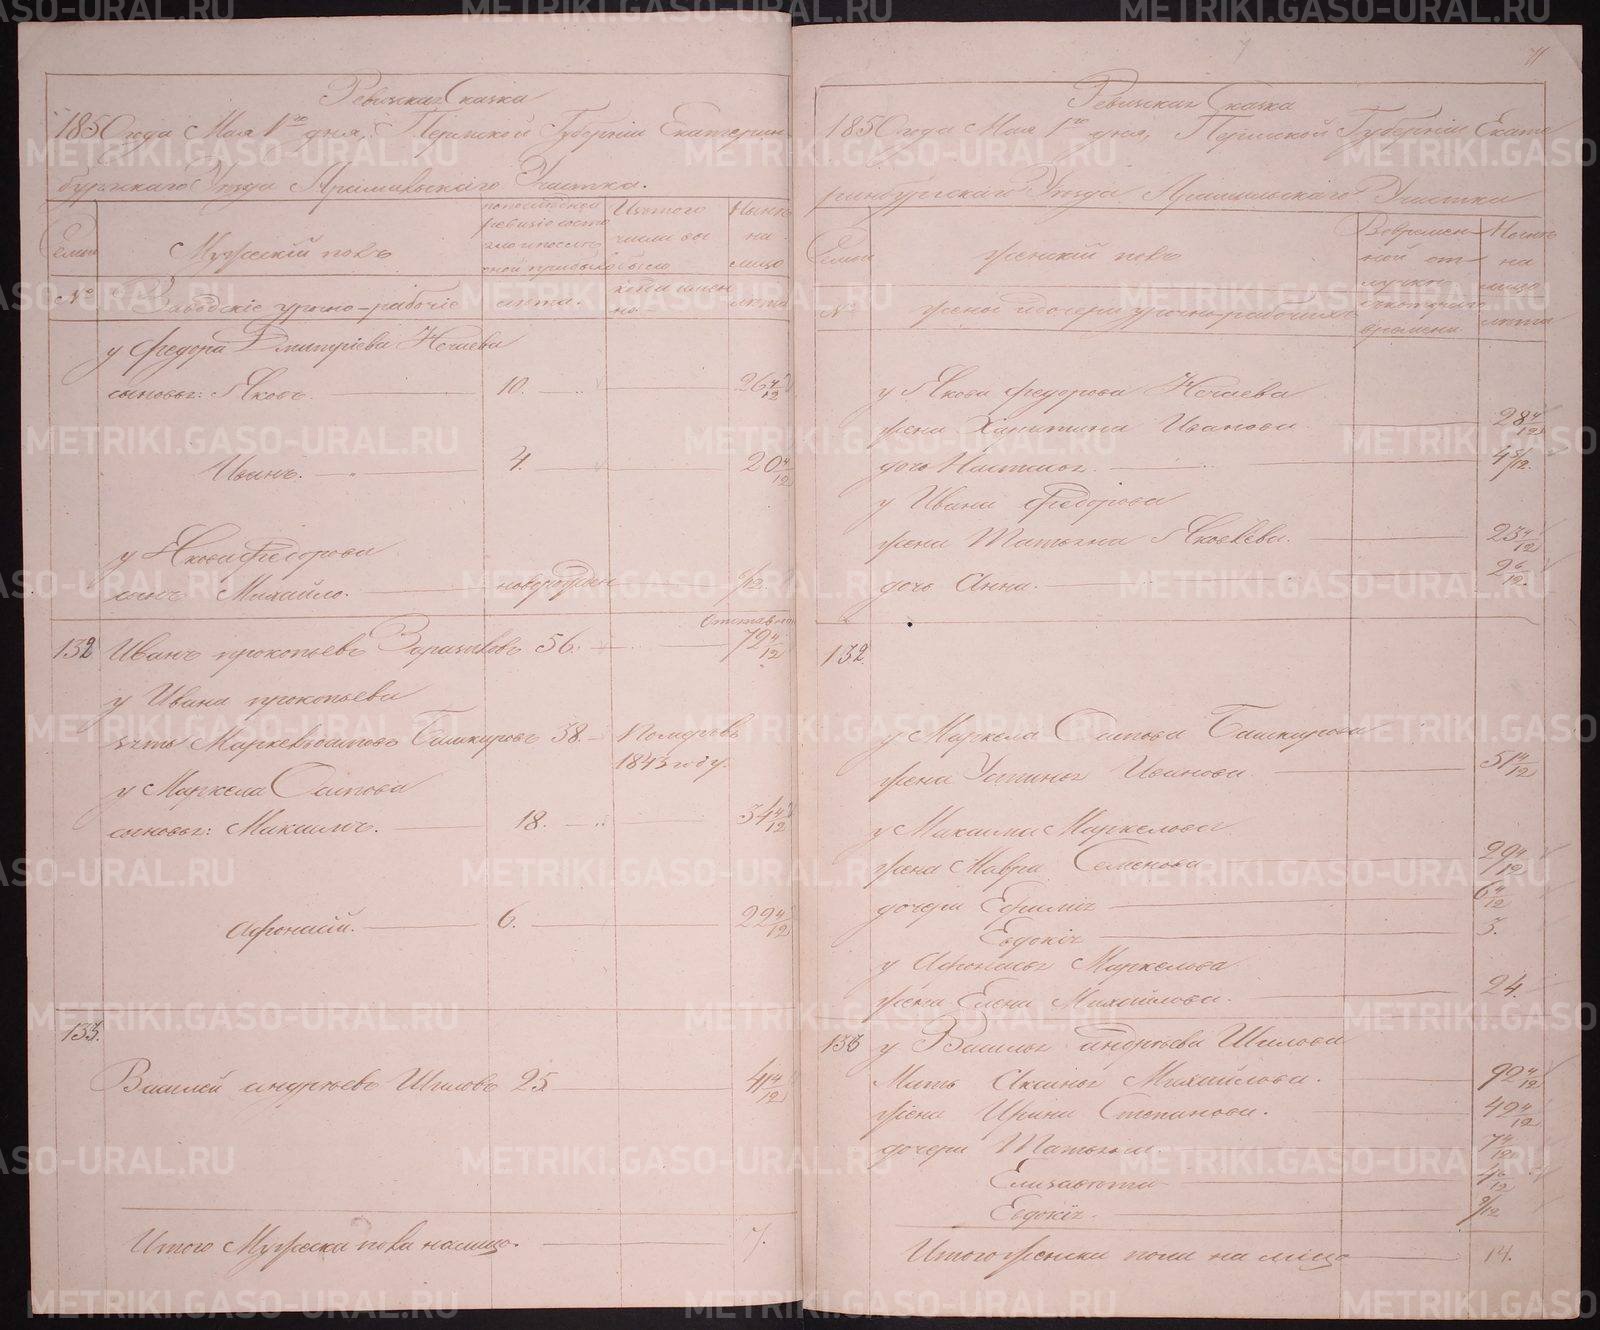 Ревизская Сказка
1850 года Мая 1го дня, Пермской Губернiи Екатерин
бургскаго Уѣзда Арамильскаго Участка.
Семьи
Мужескiй полъ
по последней ревизiи состояло и после оной прибыло
Изъ того числа выбыло
Нынѣ на лицо
№
Заводскiе урочно-рабочiе
лѣта.
когда имен но
лѣта
у Федора Дмитрiева Нечаева
сыновья: Яковъ. 10. 26 4/12
Иванъ. 4. 20 4/12
у Якова Федорова
сынъ Михайло. новорожден 6/12.
132 Иванъ прокопьевъ 56. 72 4/12
у Ивана прокопьева
зять Маркелъ Осиповъ Башкировъ 38. Померъ въ
1843 году.
у Маркела Осипова
сыновья: Максимъ. 18. 34 4/12
Афонасiй. 6. 22 4/12
133.
Василей андреевъ Шиловъ 25 41 4/12
Итого Мужеска пола на лицо. 7.
71
Ревизская Сказка
1850 года Мая 1го дня, Пермской Губернiи Екате
ринбургскаго Уѣзда Арамильскаго Участка
Семьи
Женскiй полъ
Во временной отлучке
Нынѣ на лицо
№
жены и дочери урочно-рабочихъ
съ котораго времени
лѣта
у Якова Федорова Нечаева
жена Харитина Иванова 28 4/12
дочь Наталья. 4 8/12.
у Ивана Федорова
жена Татьяна Яковлева. 23 4/12
дочь Анна. 2 6/12.
132.
у Маркела Осипова Башкирова
жена Устинья Иванова 51 4/12
у Максима Маркелова
жена Мавра Семенова 29 4/12
дочери Ефимiя 6 4/12
Евдокiя 3.
у Афонасья Маркелова
жена Елена Михайлова. 24.
133 у Василья андреева Шилова
Мать Аксинья Михайлова. 92 4/12
жена Ирина Степанова. 42 4/12
дочери Татьяна. 7 4/12
Елизавѣта 4 6/12
Евдокiя. 9/12
Итого женска пола на лицо 14.
METRIKI.GASO-URAL.RU